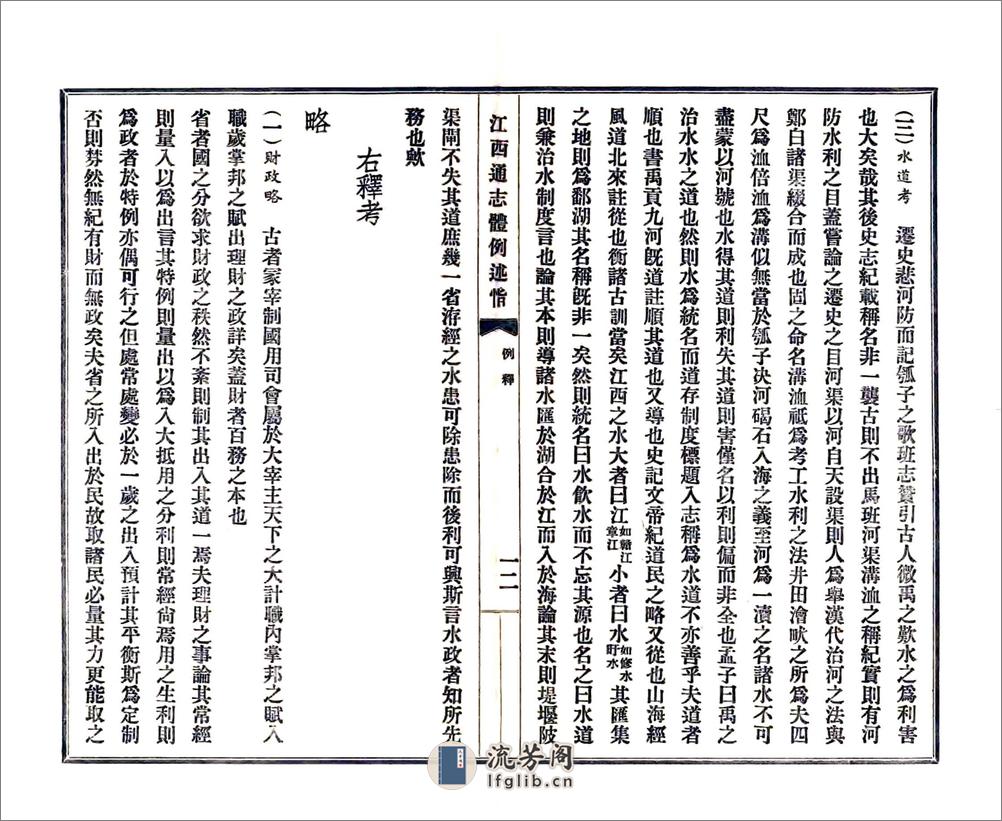 (三)水道考　遷史悲河防而記瓠子之歌班志贊引古人微禹之歎水之爲利害
也大矣哉其後史志紀載稱名非一襲古則不出馬班河渠溝洫之稱紀實則有河
防水利之目蓋嘗論之遷史之目河渠以河自天設渠則人爲舉漢代治河之法與
鄭白諸渠綴合而成也固之命名溝洫祗爲考工水利之法井田澮畎之所爲夫四
尺爲洫倍洫爲溝似無當於瓠子决河碣石入海之義至河爲一瀆之名諸水不可
盡蒙以河號也水得其道則利失其道則害僅名以利則偏而非全也孟子曰禹之
治水水之道也然則水爲統名而道存制度標題入志稱爲水道不亦善乎夫道者
順也書禹貢九河旣道註順其道也又導也史記文帝紀道民之略又從也山海經
風道北來註從也衡諸古訓當矣江西之水大者曰江如贛江章江小者曰水如修水盱水其匯集
之地則爲鄱湖其名稱旣非一矣然則統名曰水飮水而不忘其源也名之曰水道
則兼治水制度言也論其本則導諸水匯於湖合於江而入於海論其末則堤堰陂
江西通志體例述惜
例釋
一二
渠閘不失其道庶幾一省洊經之水患可除患除而後利可興斯言水政者知所先
務也歟
右釋考
略
(一)財政略　古者冢宰制國用司會屬於大宰主天下之大計職內掌邦之賦入
職歲掌邦之賦出理財之政詳矣蓋財者百務之本也
省者國之分欲求財政之秩然不紊則制其出入其道一焉夫理財之事論其常經
則量入以爲出言其特例則量出以爲入大抵用之分利則常經尙焉用之生利則
爲政者於特例亦偶可行之但處常處變必於一歲之出入預計其平衡斯爲定制
否則棼然無紀有財而無政矣夫省之所入出於民故取諸民必量其力更能取之
流芳阁
lfglib.cn